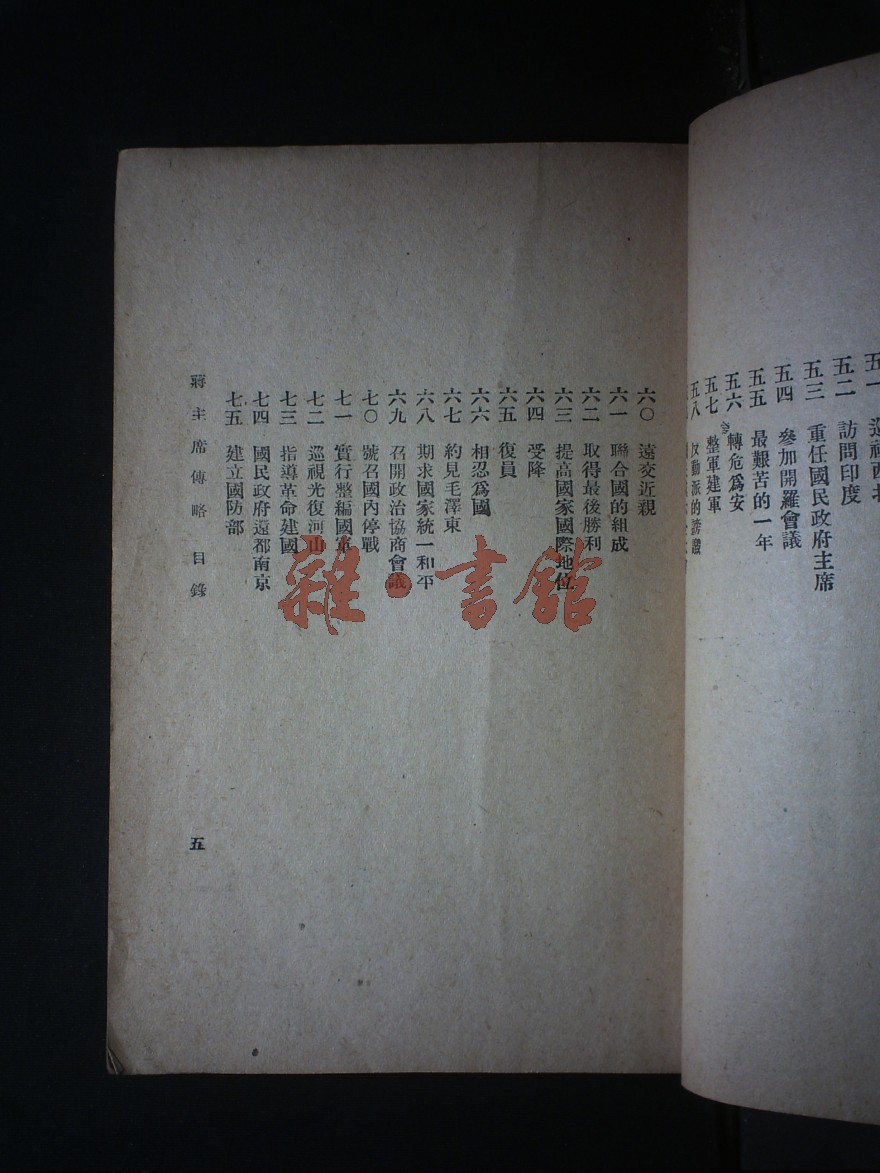 五一 巡視西北
五二 訪問印度
五三 重任國民政府主席
五四 參加開羅會議
五五 最艱苦的一年
五六 轉危爲安
五七 整軍建軍
五八 反動派的謗讟
六〇 遠交近親
六一 聯合國的組成
六二 取得最後勝利
六三 提高國家國際地位
六四 受降
六五 復員
六六 相忍爲國
六七 約見毛澤東
六八 期求國家統一和平
六九 召開政治協商會議
七〇 號召國內停戰
七一 實行整編國軍
七二 巡視光復河山
七三 指導革命建國
七四 國民政府還都南京
七五 建立國防部
蔣主席傳略 目錄
五
雜·書館